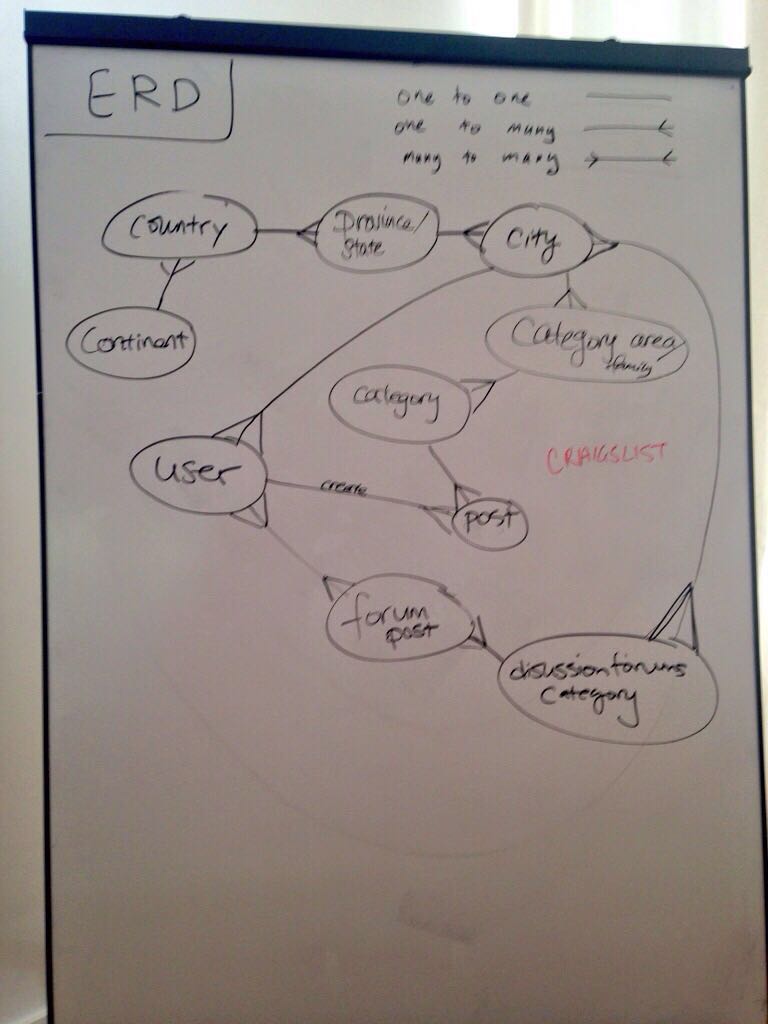 ERD
one to one
one to many
many to many
Country
Province/
State
City
Continent
Category area/
family
Category
CRAIGSLIST
user
create
post
forum
post
disussion forums
Category